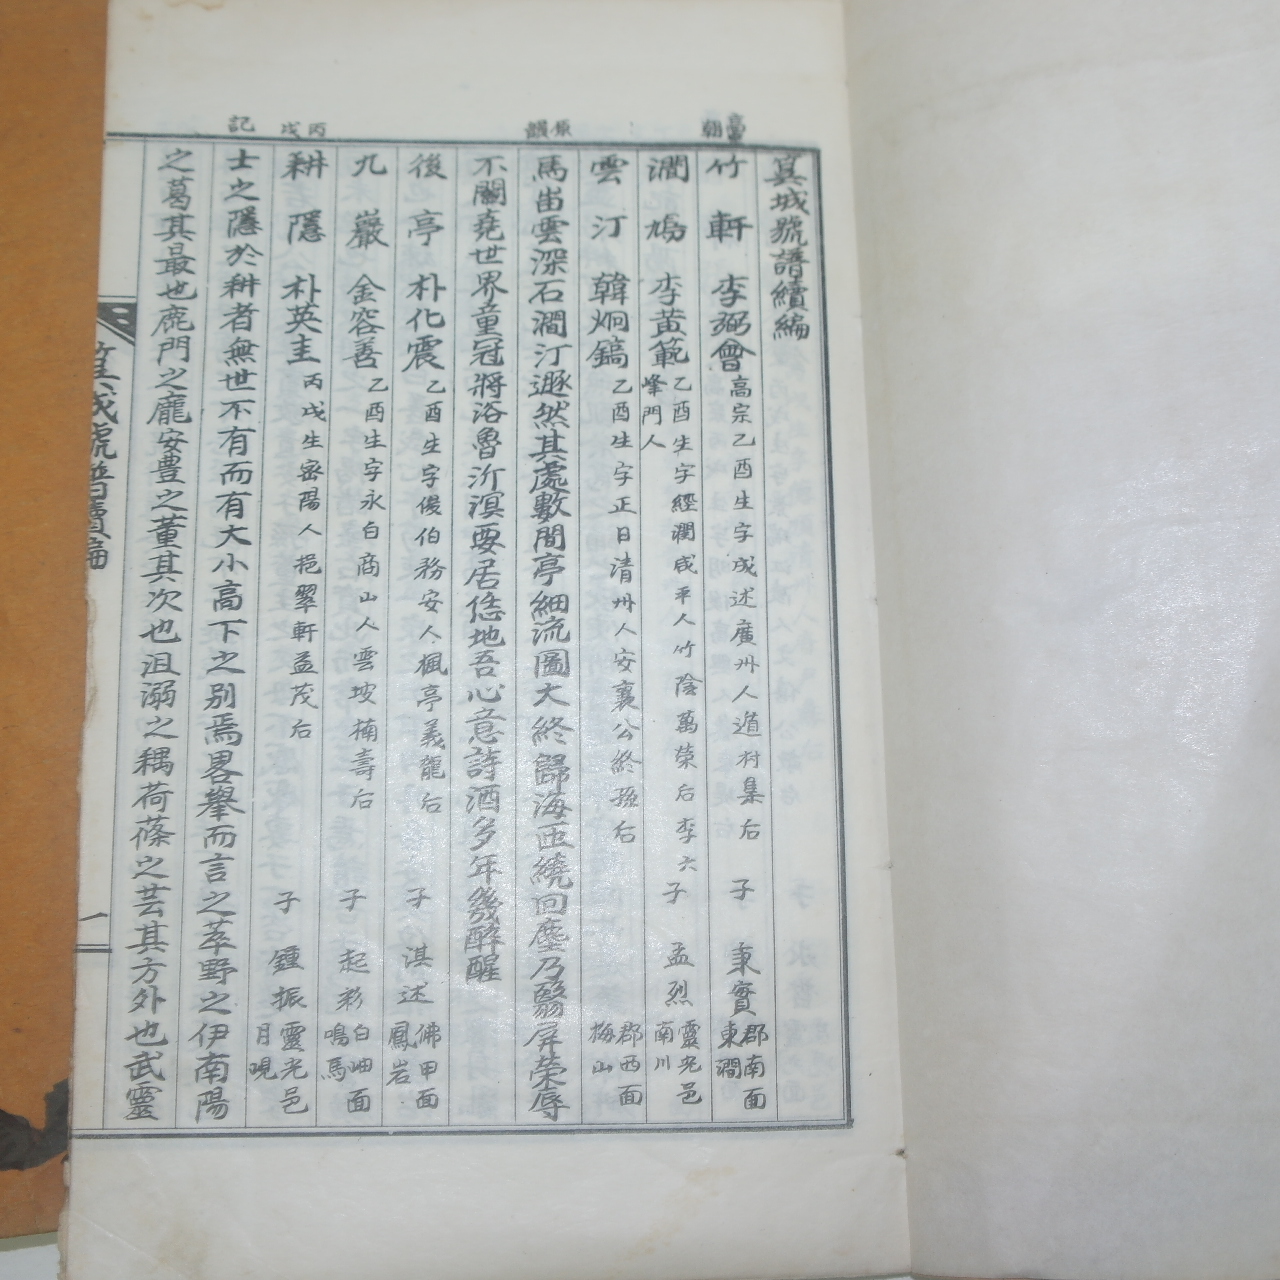 當朝
原韻
丙戌
記
筽城號譜續編
竹軒 李弼會 高宗乙酉生字成述廣州人遁村集后 子 秉實 郡南面東澗
澗鳩 李黃範 乙酉生字經潤咸平人竹陰萬榮后李六峰門人 子 孟烈 靈光邑南川
雲汀 韓炯鎬 乙酉生字正日清州人安襄公終孫后 郡西面梅山
馬峀雲深石澗汀遯然其處數間亭細流圖大終歸海匝繞回塵乃翳屏榮辱
不關堯世界童冠將浴魯沂溟要居恁地吾心意詩酒多年幾醉醒
後亭 朴化震 乙酉生字俊伯務安人楓亭義龍后 子 淇述 佛甲面鳳岩
九巖 金容善 乙酉生字永白商山人雲坡楠壽后 子 起彩 白岫面鳴馬
耕隱 朴英圭 丙戌生密陽人挹翠軒益茂后 子 鍾振 靈光邑月晛
士之隱於耕者無世不有而有大小高下之別焉畧擧而言之莘野之伊南陽
之葛其最也鹿門之龐安豊之董其次也沮溺之耦荷蓧之芸其方外也武靈
筽城號譜續編
一